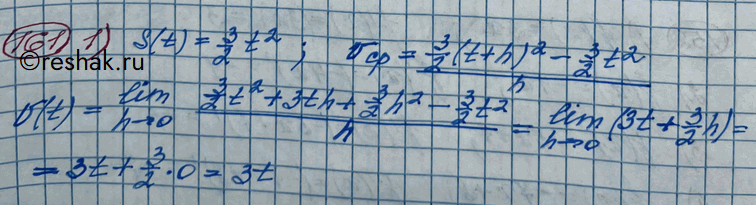 161) 1) S(t) = 3/2 t² ; υср = (3/2 (t+h)² − 3/2 t²)/h
©reshak.ru
υ(t) = lim h→0 (3/2 t² + 3th + 3/2 h² − 3/2 t²)/h = lim h→0 (3t + 3/2 h) =
= 3t + 3/2 · 0 = 3t